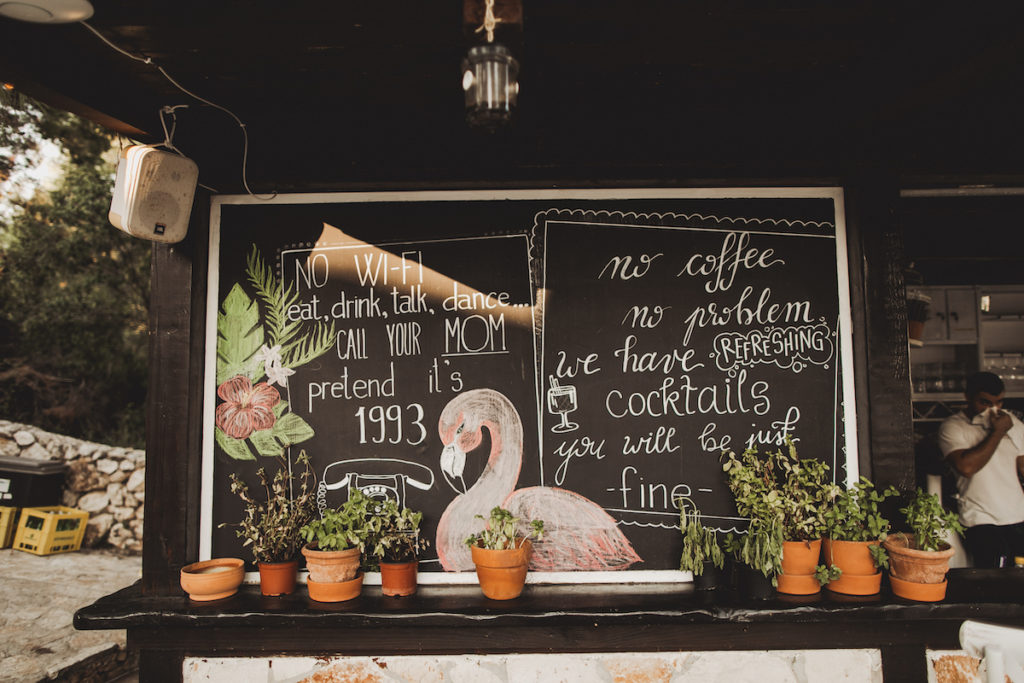 NO WI-FI
eat, drink, talk, dance...
CALL YOUR MOM
pretend it's
1993
no coffee
no problem
we have REFRESHING
cocktails
you will be just
-fine-
JBL